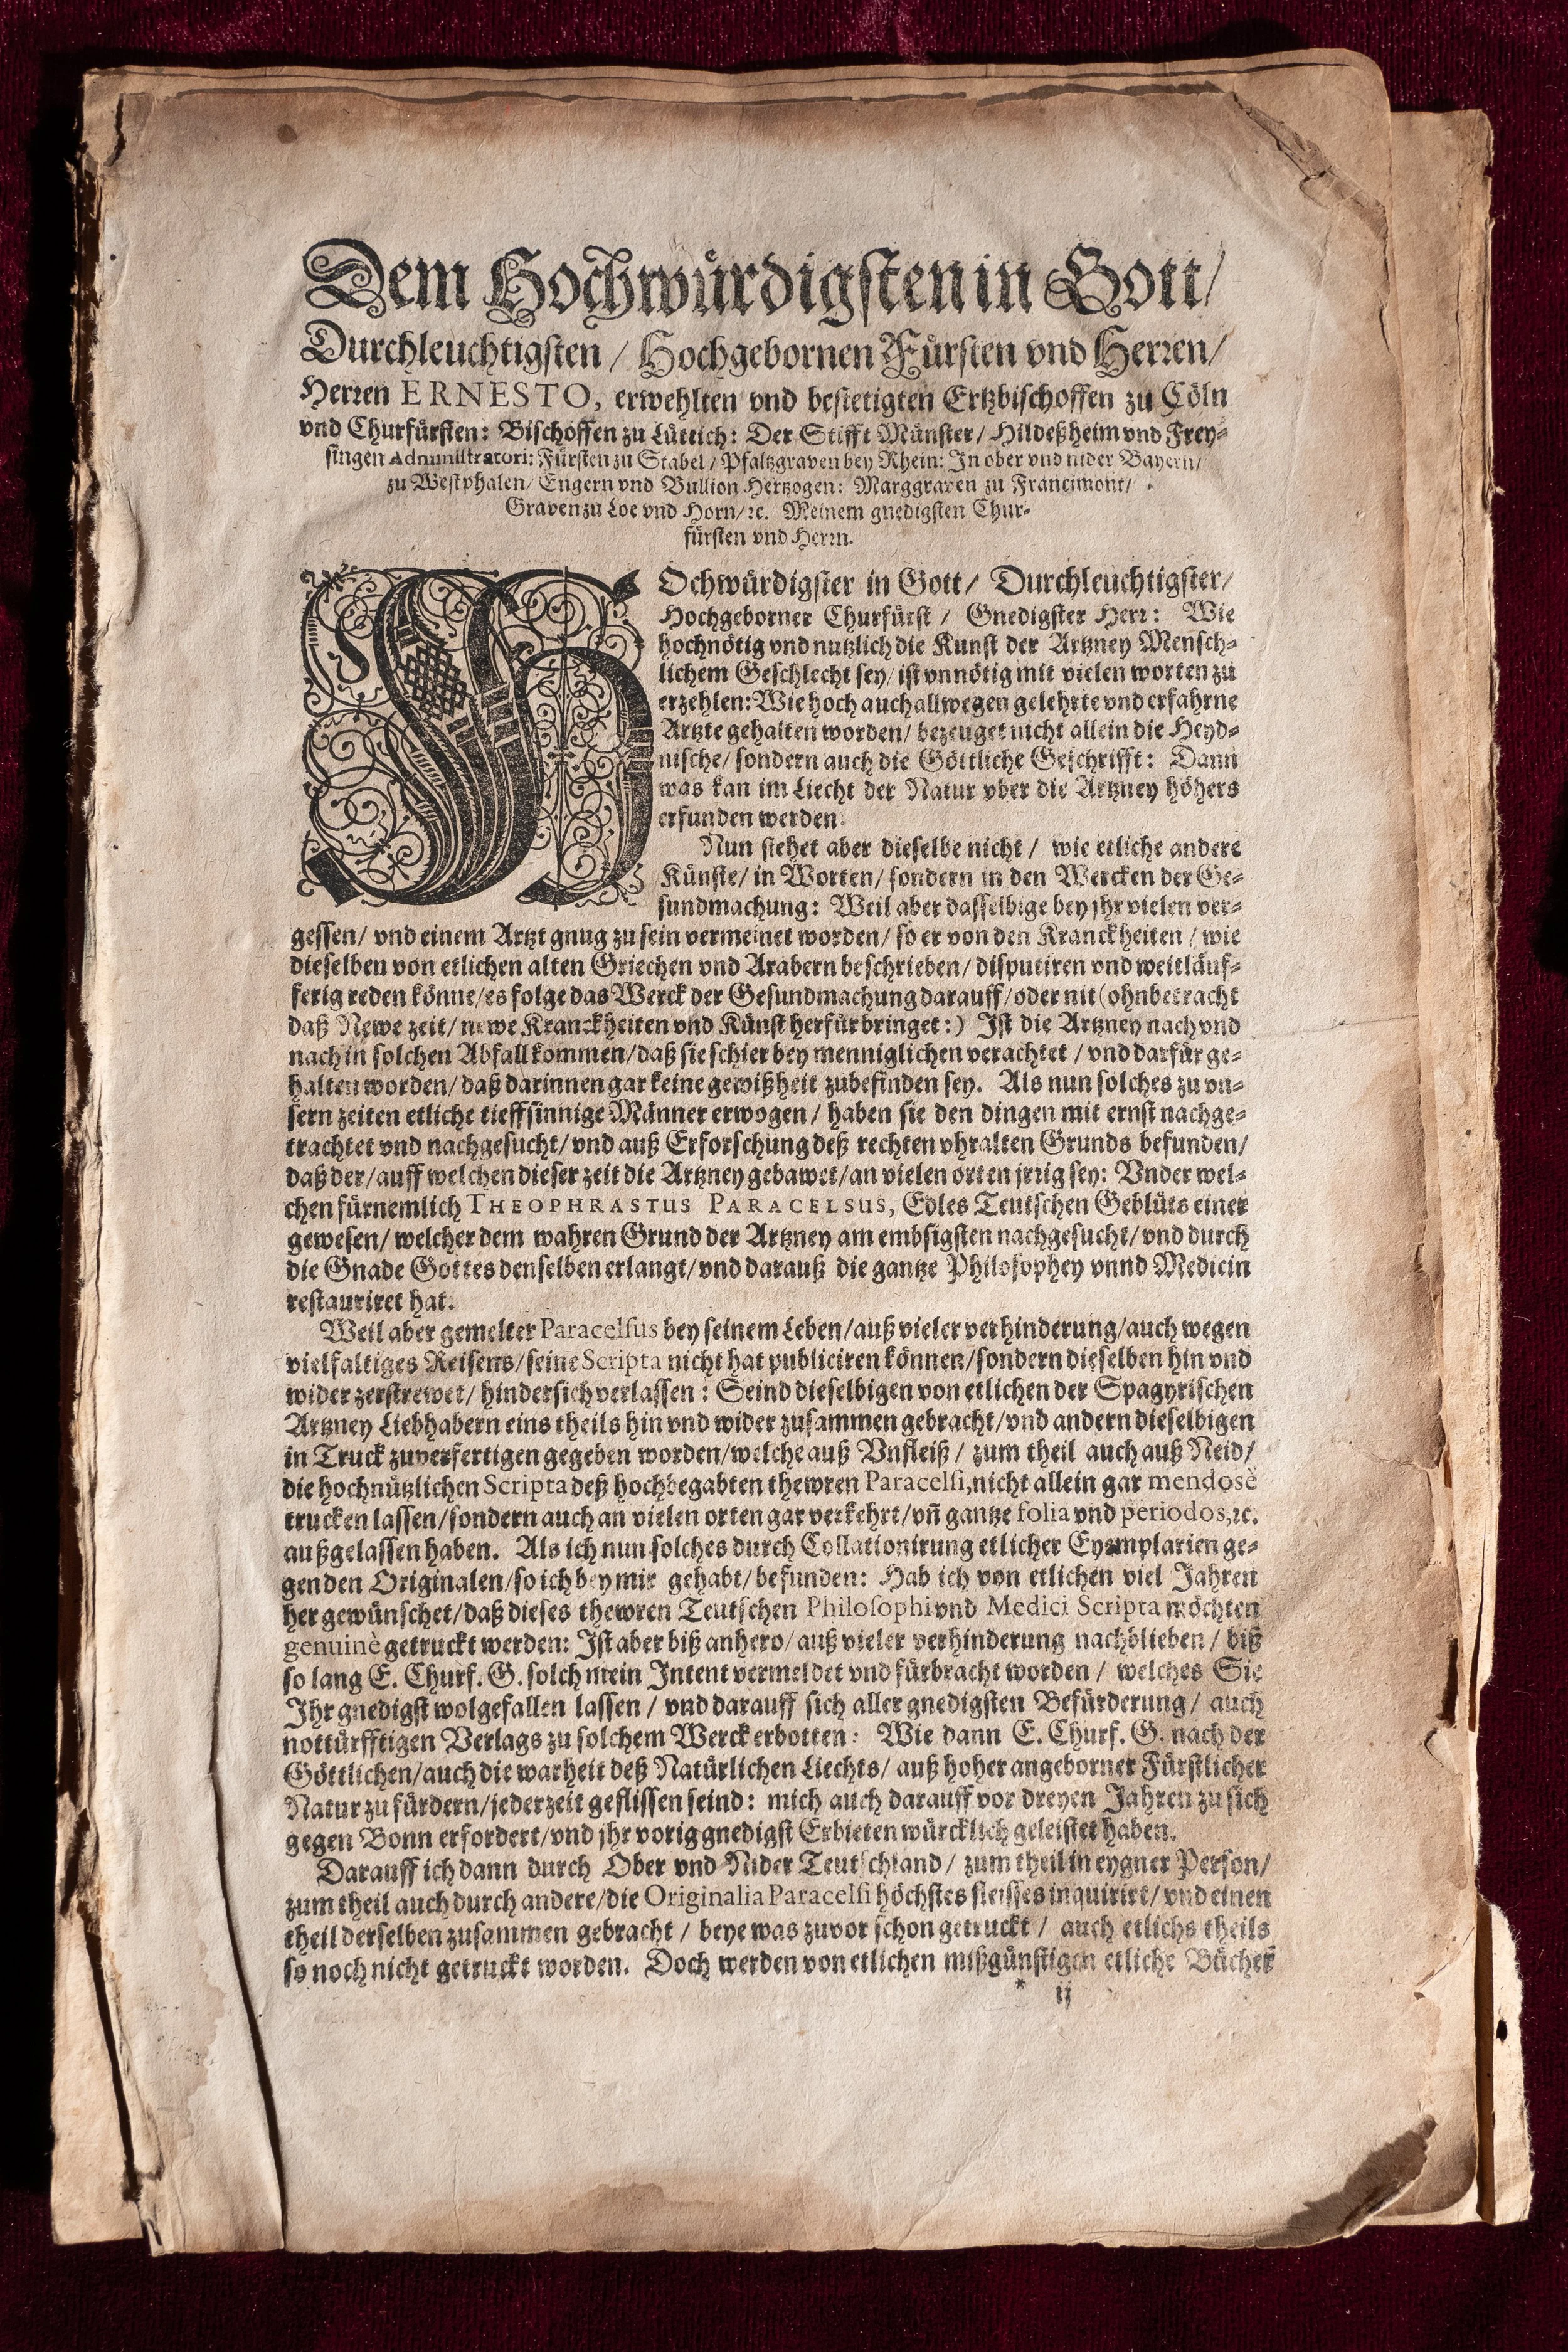 Dem Hochwürdigsten in Gott/
Durchleuchtigsten / Hochgebornen Fürsten vnd Herren/
Herren ERNESTO, erwehlten vnd bestetigten Ertzbischoffen zu Cöln
vnd Churfürsten: Bischoffen zu Lüttich: Der Stifft Münster/ Hildeßheim vnd Frey-
singen Administratori: Fürsten zu Stabel / Pfaltzgraven bey Rhein: In ober vnd nider Bayern/
zu Westphalen/ Engern vnd Bullion Hertzogen: Marggraven zu Francimont/
Graven zu Loe vnd Horn/ ꝛc. Meinem gnedigsten Chur-
fürsten vnd Herrn.
HOchwürdigster in Gott/ Durchleuchtigster/
Hochgeborner Churfürst / Gnedigster Herr: Wie
hochnötig vnd nutzlich die Kunst der Artzney Mensch-
lichem Geschlecht sey/ ist vnnötig mit vielen worten zu
erzehlen: Wie hoch auch allwegen gelehrte vnd erfahrne
Artzte gehalten worden/ bezeuget nicht allein die Heyd-
nische/ sondern auch die Göttliche Geschrifft: Dann
was kan im Liecht der Natur vber die Artzney höhers
erfunden werden.
Nun stehet aber dieselbe nicht / wie etliche andere
Künste/ in Worten/ sondern in den Wercken der Ge-
sundmachung: Weil aber dasselbige bey jhr vielen ver-
gessen/ vnd einem Artzt gnug zu sein vermeinet worden/ so er von den Kranckheiten / wie
dieselben von etlichen alten Griechen vnd Arabern beschrieben/ disputiren vnd weitläuf-
ferig reden könne/ es folge das Werck der Gesundmachung darauff/ oder nit (ohnbetracht
daß Newe zeit/ newe Kranckheiten vnd Künst herfür bringet:) Ist die Artzney nach vnd
nach in solchen Abfall kommen/ daß sie schier bey menniglichen verachtet / vnd darfür ge-
halten worden/ daß darinnen gar keine gewißheit zubefinden sey. Als nun solches zu vn-
sern zeiten etliche tieffsinnige Männer erwogen / haben sie den dingen mit ernst nachge-
trachtet vnd nachgesucht/ vnd auß Erforschung deß rechten vhralten Grunds befunden/
daß der/ auff welchen dieser zeit die Artzney gebawet/ an vielen orten jrrig sey: Vnder wel-
chen fürnemlich THEOPHRASTUS PARACELSUS, Edles Teutschen Geblüts einer
gewesen/ welcher dem wahren Grund der Artzney am embsigsten nachgesucht/ vnd durch
die Gnade Gottes denselben erlangt/ vnd darauß die gantze Philosophey vnnd Medicin
restauriret hat.
Weil aber gemelter Paracelsus bey seinem Leben/ auß vieler verhinderung/ auch wegen
vielfaltiges Reisens/ seine Scripta nicht hat publiciren können/ sondern dieselben hin vnd
wider zerstrewet/ hindersich verlassen: Seind dieselbigen von etlichen der Spagyrischen
Artzney Liebhabern eins theils hin vnd wider zusammen gebracht/ vnd andern dieselbigen
in Truck zuverfertigen gegeben worden/ welche auß Vnfleiß / zum theil auch auß Neid/
die hochnützlichen Scripta deß hochbegabten thewren Paracelsi, nicht allein gar mendosè
trucken lassen/ sondern auch an vielen orten gar verkehrt/ vñ gantze folia vnd periodos, ꝛc.
außgelassen haben. Als ich nun solches durch Collationirung etlicher Exemplarien ge-
gen den Originalen/ so ich bey mir gehabt/ befunden: Hab ich von etlichen viel Jahren
her gewünschet/ daß dieses thewren Teutschen Philosophi vnd Medici Scripta möchten
genuinè getruckt werden: Ist aber biß anhero/ auß vieler verhinderung nachblieben / biß
so lang E. Churf. G. solch mein Intent vermeldet vnd fürbracht worden / welches Sie
Ihr gnedigst wolgefallen lassen / vnd darauff sich aller gnedigsten Befürderung/ auch
nottürfftigen Verlags zu solchem Werck erbotten: Wie dann E. Churf. G. nach der
Göttlichen/ auch die warheit deß Natürlichen Liechts/ auß hoher angeborner Fürstlicher
Natur zu fürdern/ jederzeit geflissen seind: mich auch darauff vor dreyen Jahren zu sich
gegen Bonn erfordert/ vnd jhr vorig gnedigst Erbieten würcklich geleistet haben.
Darauff ich dann durch Ober vnd Nider Teutschland / zum theil in eygner Person/
zum theil auch durch andere/ die Originalia Paracelsi höchstes fleisses inquirirt/ vnd einen
theil derselben zusammen gebracht / beye was zuvor schon getruckt / auch etlichs theils
so noch nicht getruckt worden. Doch werden von etlichen mißgünstigen etliche Bücher
* ij